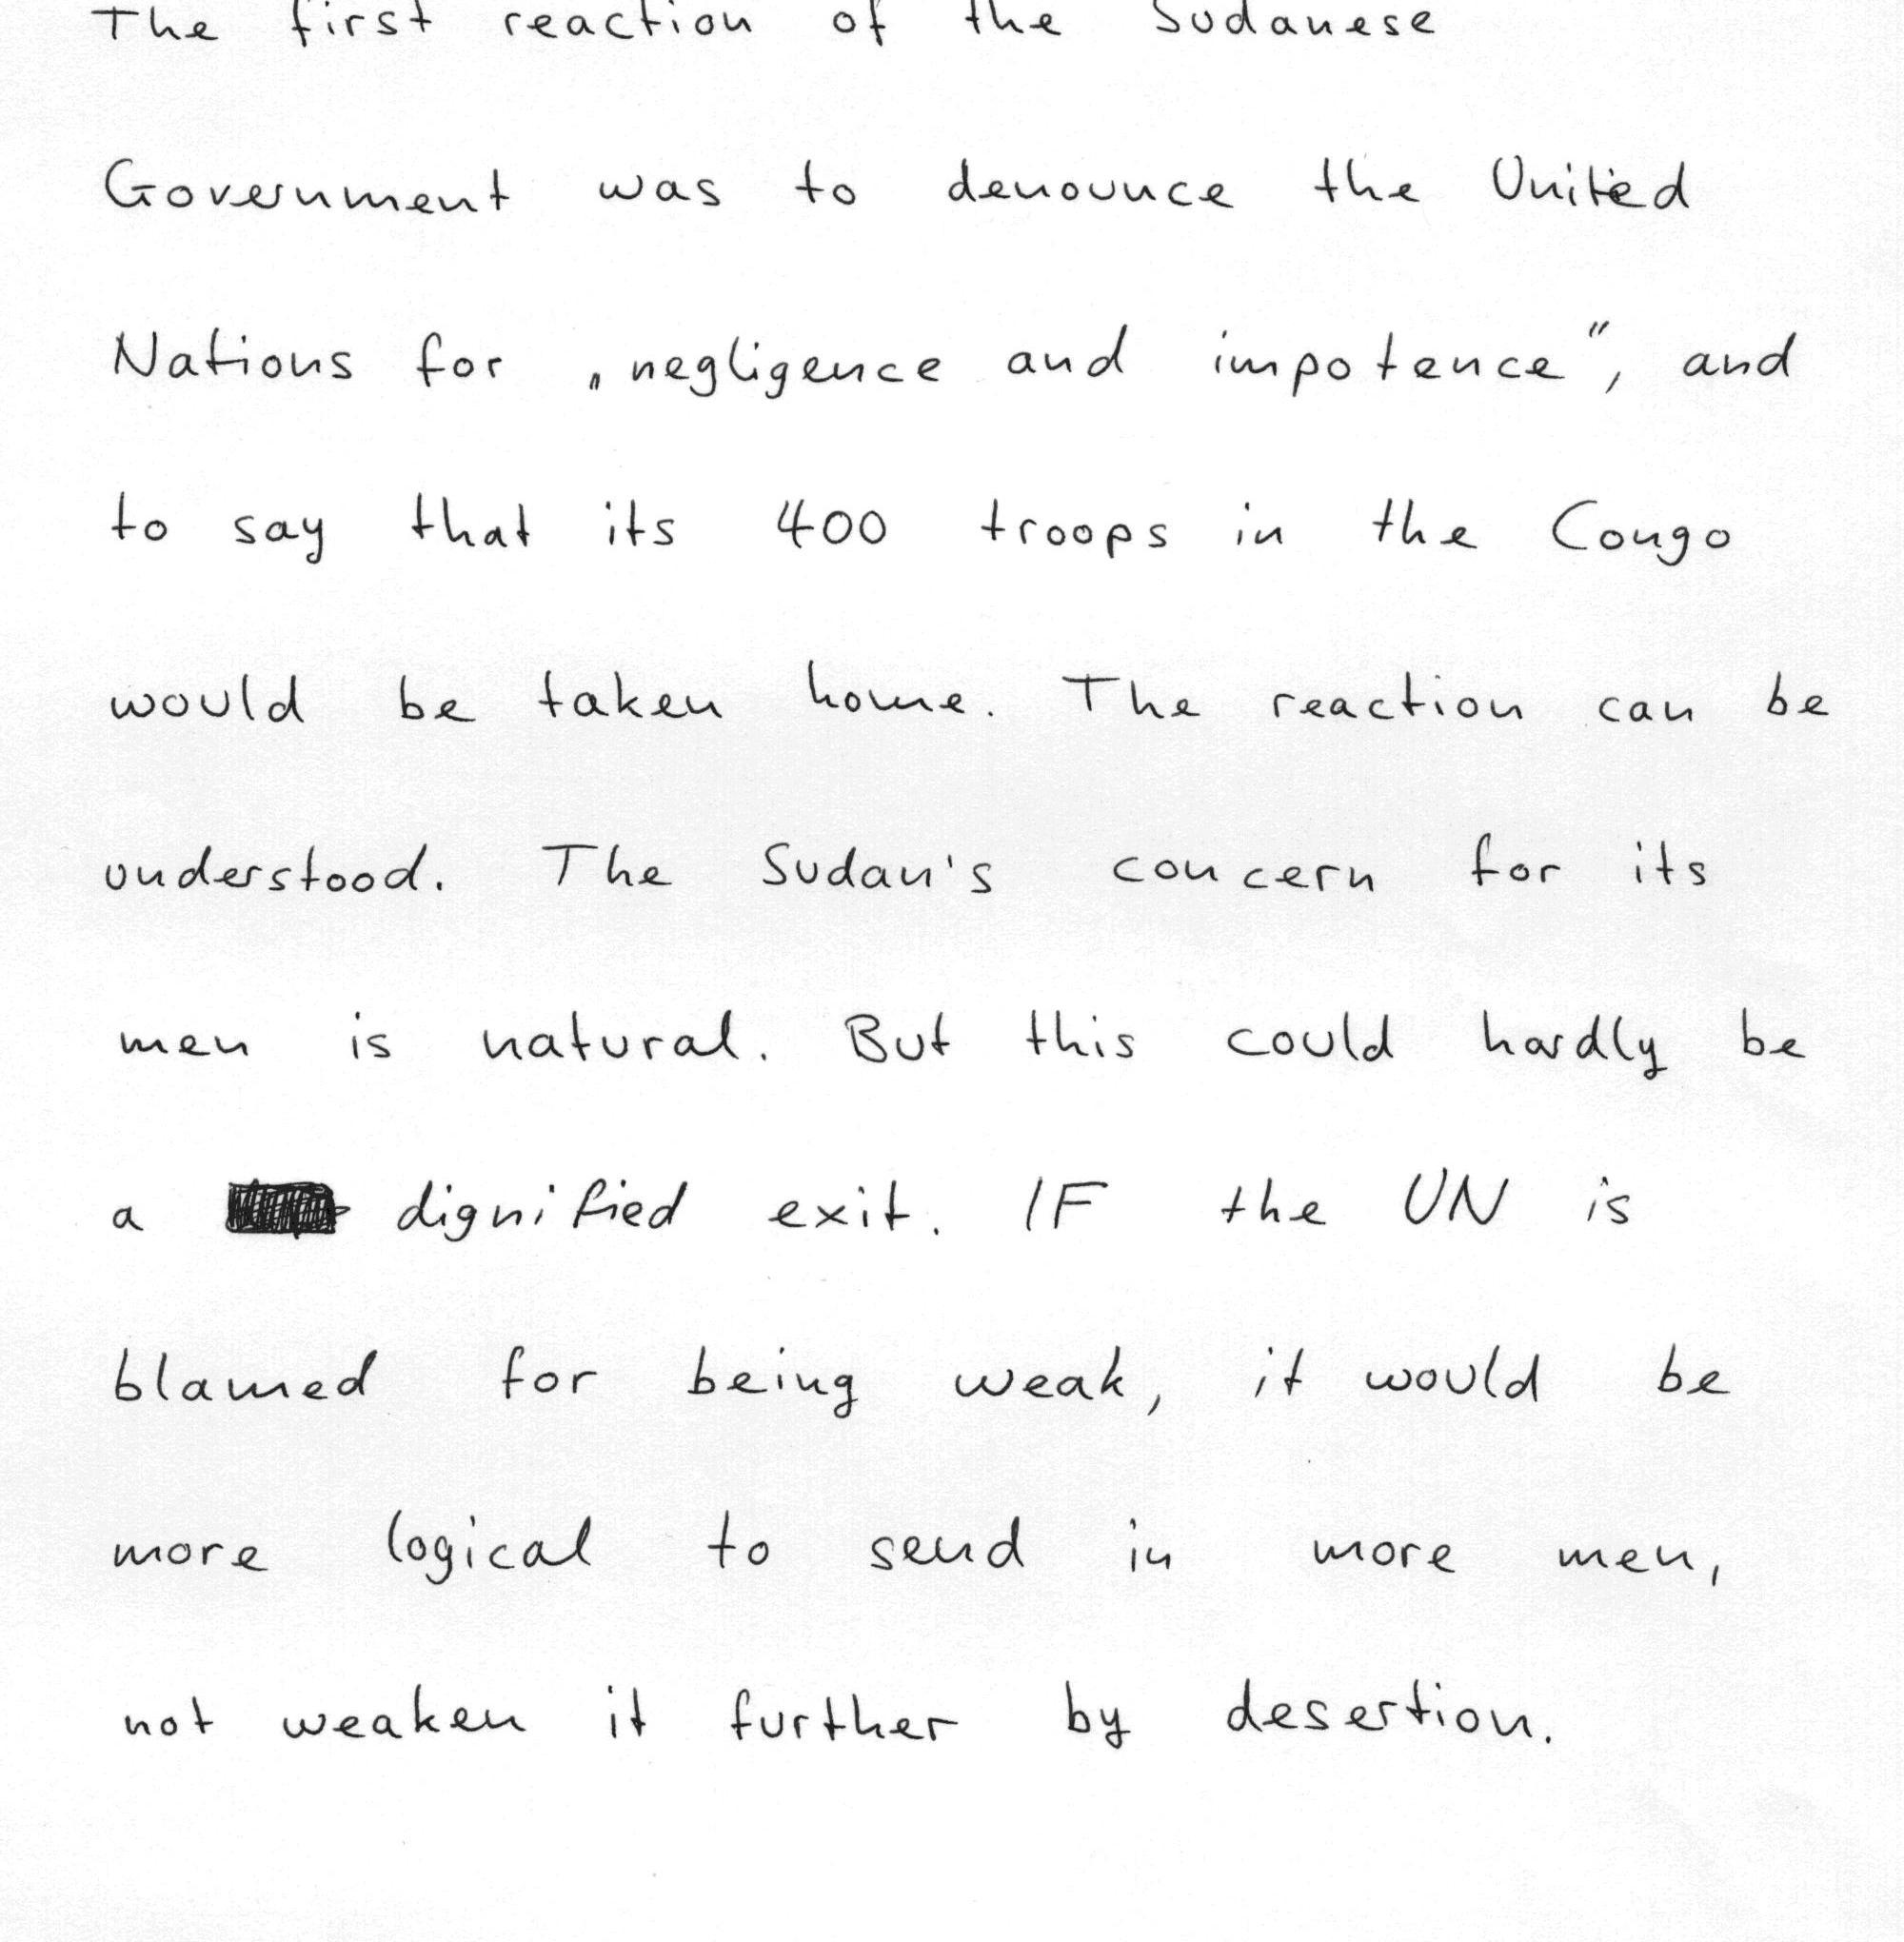 The first reaction of the Sudanese
Government was to denounce the United
Nations for „negligence and impotence”, and
to say that its 400 troops in the Congo
would be taken home. The reaction can be
understood. The Sudan's concern for its
men is natural. But this could hardly be
a dignified exit. IF the UN is
blamed for being weak, it would be
more logical to send in more men,
not weaken it further by desertion.